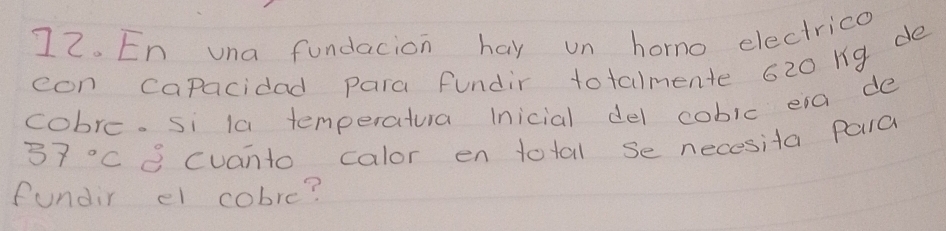 12. En una fundacion hay un horno electrico
con capacidad para fundir totalmente 620 Kg de
cobre. si la temperatura Inicial del cobre era de
37 °C ¿ cuanto calor en total se necesita para
fundir el cobre?